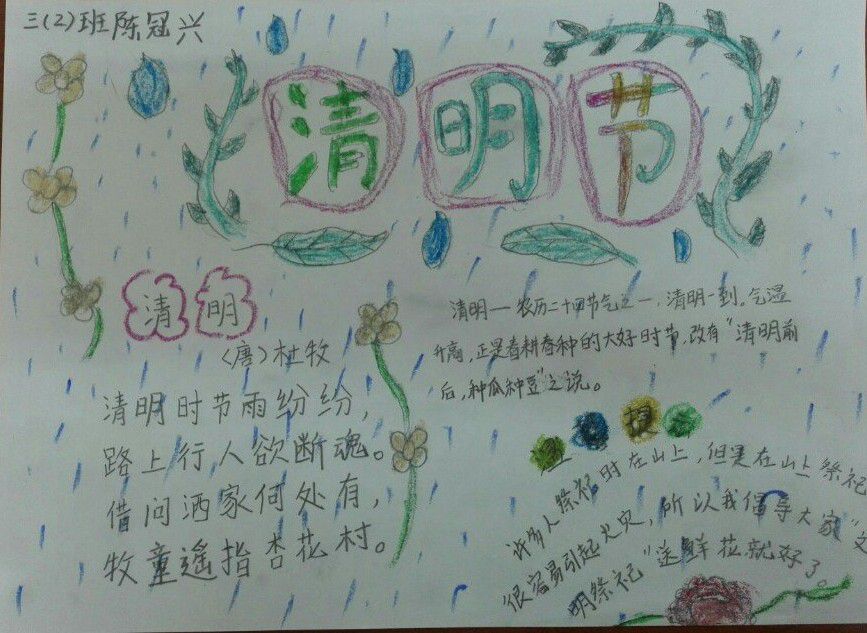 三(2)班陈冠兴
清明节
清明
〈唐〉杜牧
清明时节雨纷纷，
路上行人欲断魂。
借问洒家何处有，
牧童遥指杏花村。
清明一农历二十四节气之一，清明一到。气温
升高，正是春耕春种的大好时节，改有"清明前
后，种瓜种豆"之说。
许多人祭祀时在山上，但是在山上祭祀
很容易引起火灾，所以我倡导大家"文
明祭祀"送鲜花就好了。